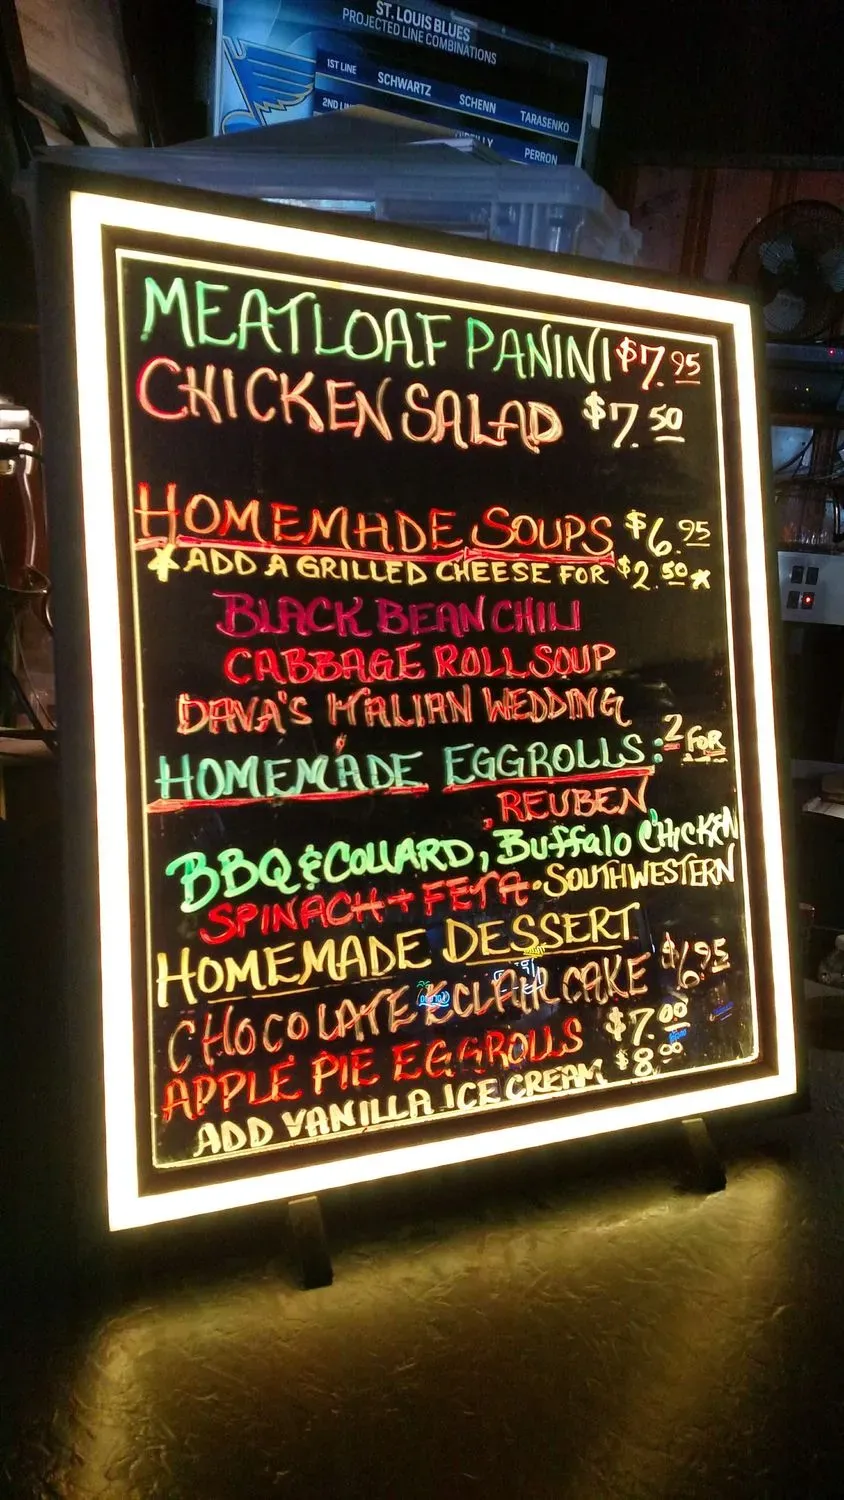 ST. LOUIS BLUES
PROJECTED LINE COMBINATIONS
1ST LINE SCHWARTZ SCHENN TARASENKO
2ND PERRON
MEATLOAF PANINI $7.95
CHICKEN SALAD $7.50
HOMEMADE SOUPS $6.95
*ADD A GRILLED CHEESE FOR $2.50*
BLACK BEAN CHILI
CABBAGE ROLL SOUP
DAVA'S ITALIAN WEDDING
HOMEMADE EGGROLLS: 2 FOR
REUBEN
BBQ & COLLARD, Buffalo CHICKEN
SPINACH + FETA · SOUTHWESTERN
HOMEMADE DESSERT
CHOCOLATE ECLAIR CAKE $6.95
APPLE PIE EGGROLLS $7.00
ADD VANILLA ICE CREAM $8.00